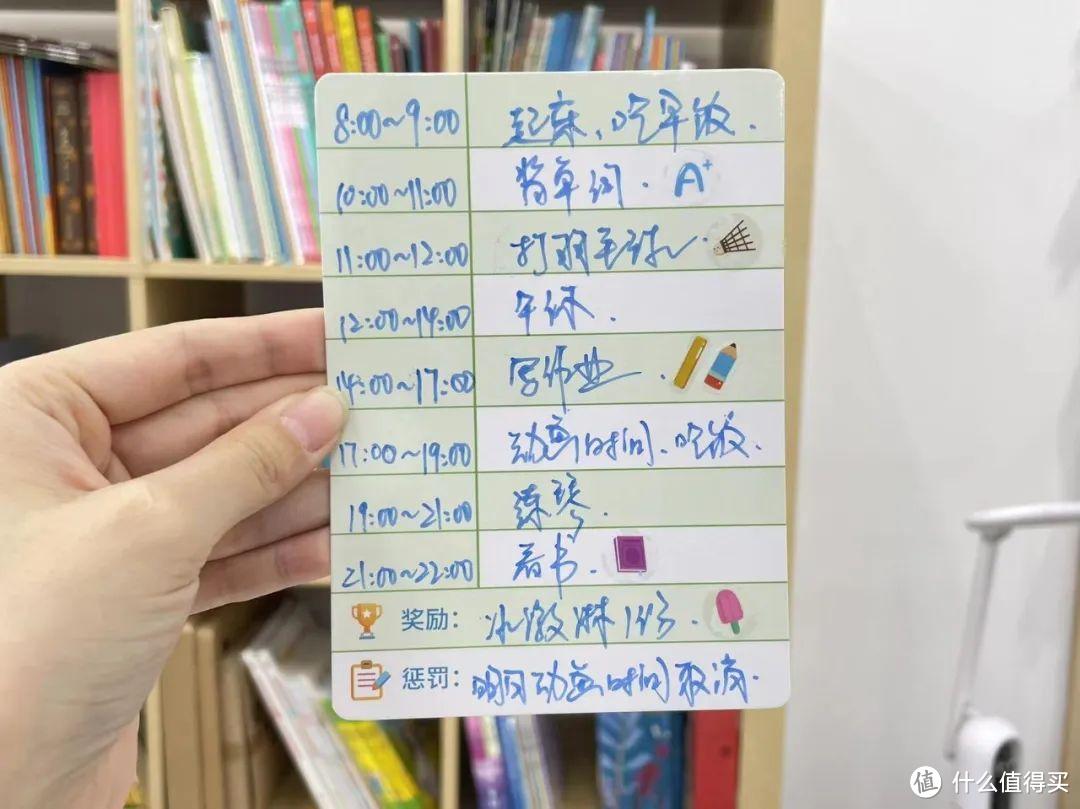 8:00~9:00 起床、吃早饭.
10:00~11:00 背单词. A+
11:00~12:00 打羽毛球.
12:00~14:00 午休.
14:00~17:00 写作业.
17:00~19:00 动画时间、吃饭.
19:00~21:00 练琴.
21:00~22:00 看书.
奖励: 冰激淋1份.
惩罚: 明日动画时间取消.
值 什么值得买